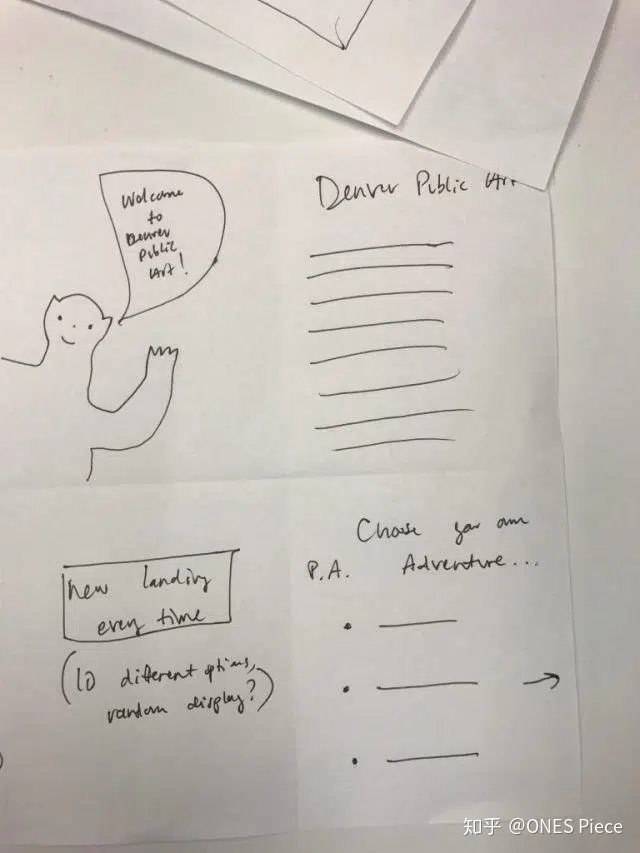 Welcome
to
Denver
Public
Art!
Denver Public Art
new landing
every time
(10 different options,
random display?)
Choose your own
P.A. Adventure...
知乎 @ONES Piece